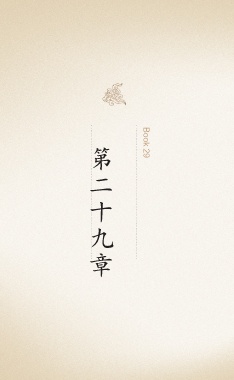 第二十九章
Book 29